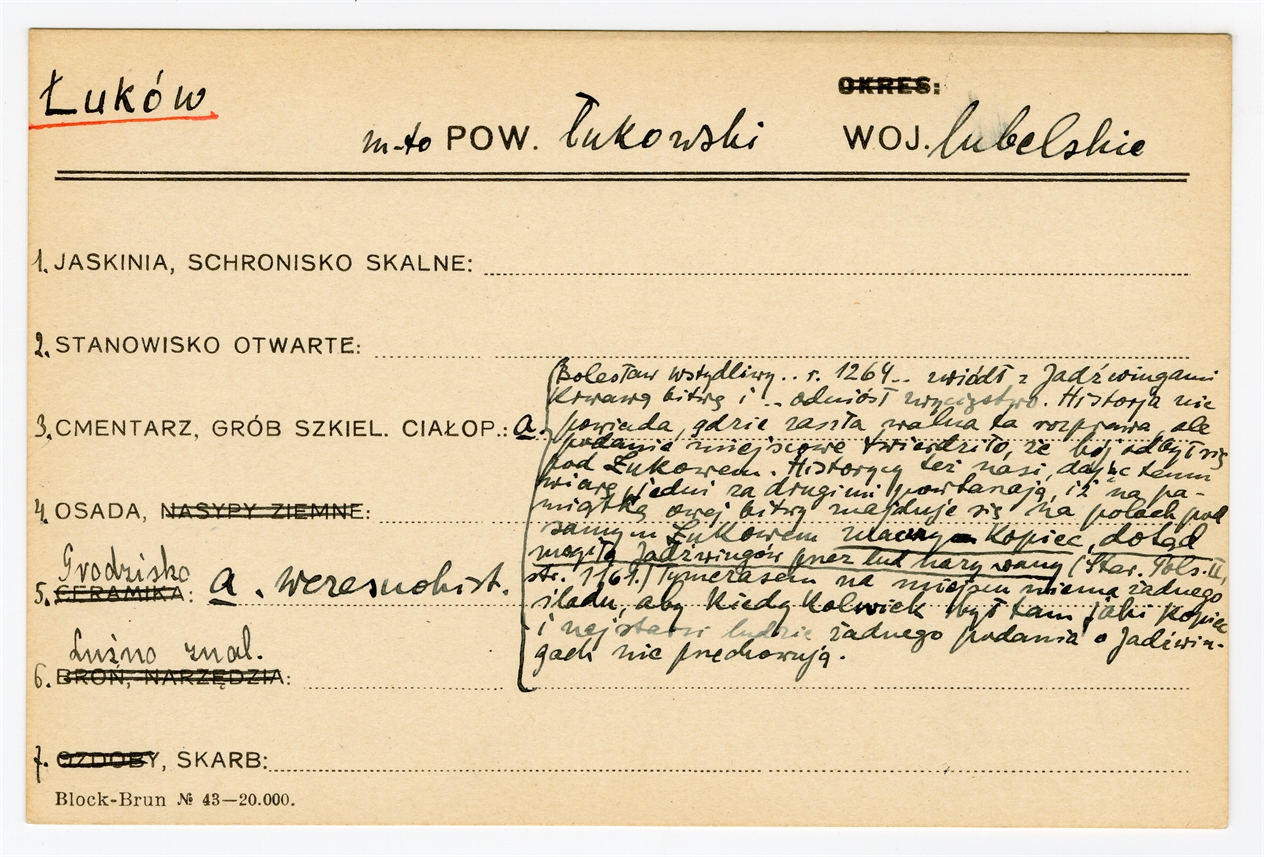 Łuków
OKRES:
m-to POW. łukowski WOJ. lubelskie
1. JASKINIA, SCHRONISKO SKALNE:
2. STANOWISKO OTWARTE:
3. CMENTARZ, GRÓB SZKIEL. CIAŁOP.: a.
4. OSADA, NASYPY ZIEMNE:
Grodzisko
5. CERAMIKA: a. wczesnohist.
Luźno znal.
6. BROŃ, NARZĘDZIA:
7. OZDOBY, SKARB:
Bolesław wstydliwy .. r. 1264 .. zwiódł z Jadźwingami
krwawą bitwę i .. odniósł zwycięstwo. Historja nie
powiada, gdzie zaszła walna ta rozprawa, ale
podanie miejscowe twierdziło, że bój odbył się
pod Łukowem. Historycy też nasi, dając temu
wiarę jedni za drugimi powtarzają, iż na pa-
miątkę owej bitwy znajduje się na polach pod
samym Łukowem znaczny Kopiec, dotąd
mogiłą Jadźwingów przez lud nazywany (Star. Pols. II,
str. 1161.) Tymczasem na miejscu niema żadnego
śladu, aby kiedykolwiek był tam jaki kopiec
i najstarsi ludzie żadnego podania o Jadźwin-
gach nie przechowują.
Block-Brun № 43—20.000.